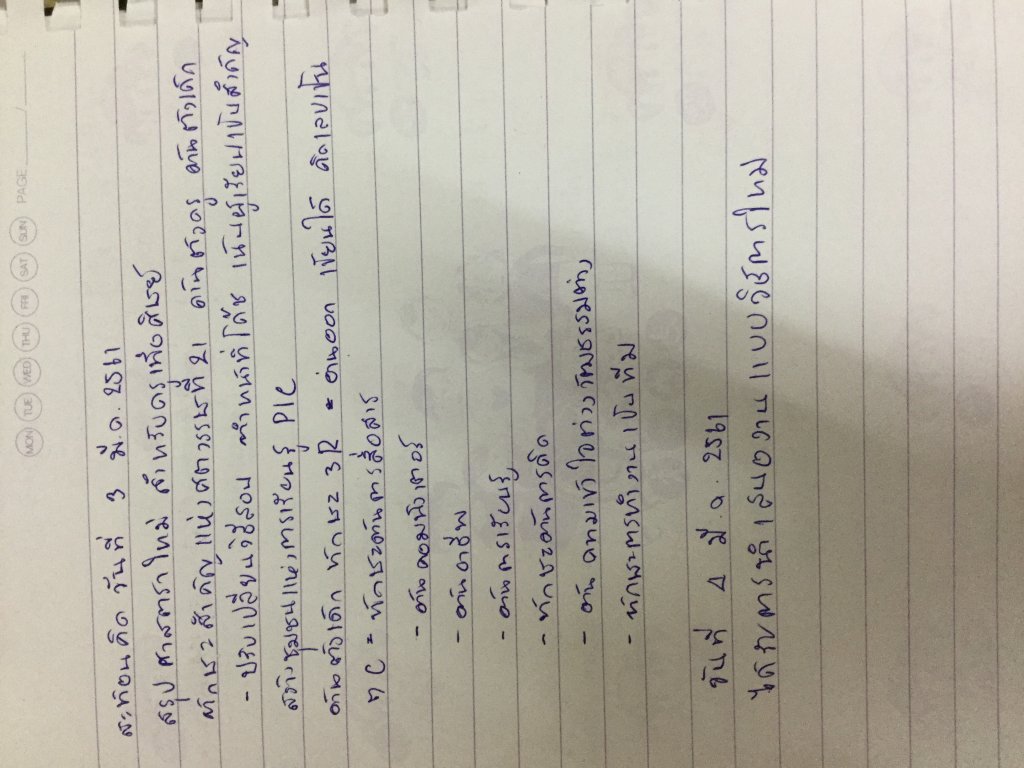 MON TUE WED THU FRI SAT SUN PAGE
สะท้อนคิด วันที่ 3 มี.ค. 2561
สรุป ศาสตราใหม่ สำหรับครูเพื่อศิษย์
ทักษะสำคัญแห่งศตวรรษที่ 21 ด้านตัวครู ด้านตัวเด็ก
- ปรับเปลี่ยนวิธีสอน ทำหน้าที่โค๊ช เน้นผู้เรียนเป็นสำคัญ
สร้างชุมชนแห่งการเรียนรู้ PLC
ด้านตัวเด็ก ทักษะ 3R = อ่านออก เขียนได้ คิดเลขเป็น
7C = ทักษะด้านการสื่อสาร
- ด้านคอมพิวเตอร์
- ด้านอาชีพ
- ด้านการเรียนรู้
- ทักษะด้านการคิด
- ด้านความเข้าใจต่างวัฒธรรมต่าง
- ทักษะการทำงานเป็นทีม
วันที่ 4 มี.ค. 2561
ได้รับการนำเสนองานแบบวิชาการใหม่